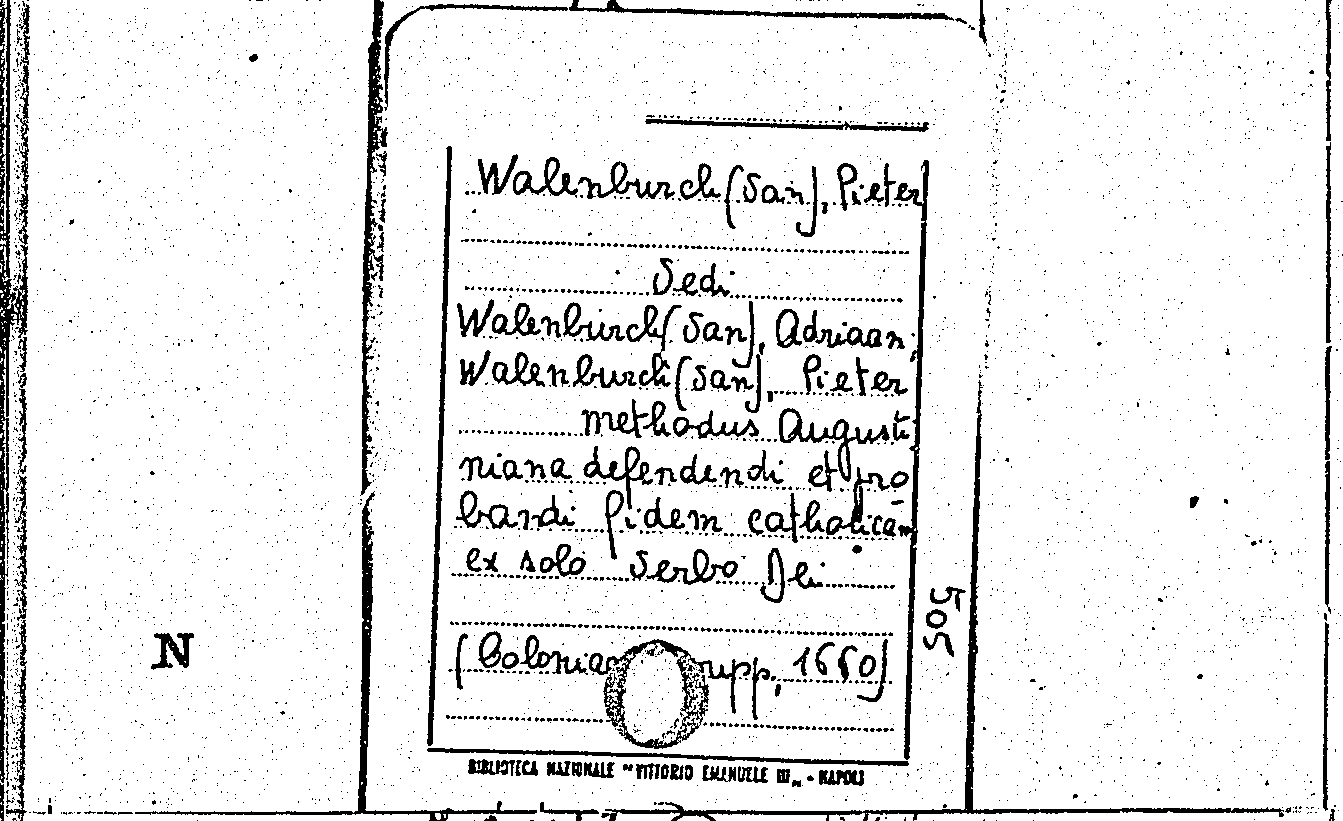 Walenburch (Van), Pieter
Vedi
Walenburch (Van), Adriaan;
Walenburch (Van), Pieter
methodus Augusti
niana defendendi et pro
bandi fidem catholicam
ex solo Verbo Dei
(Coloniae rupp., 1660)
505
N
BIBLIOTECA NAZIONALE "VITTORIO EMANUELE III„ - NAPOLI